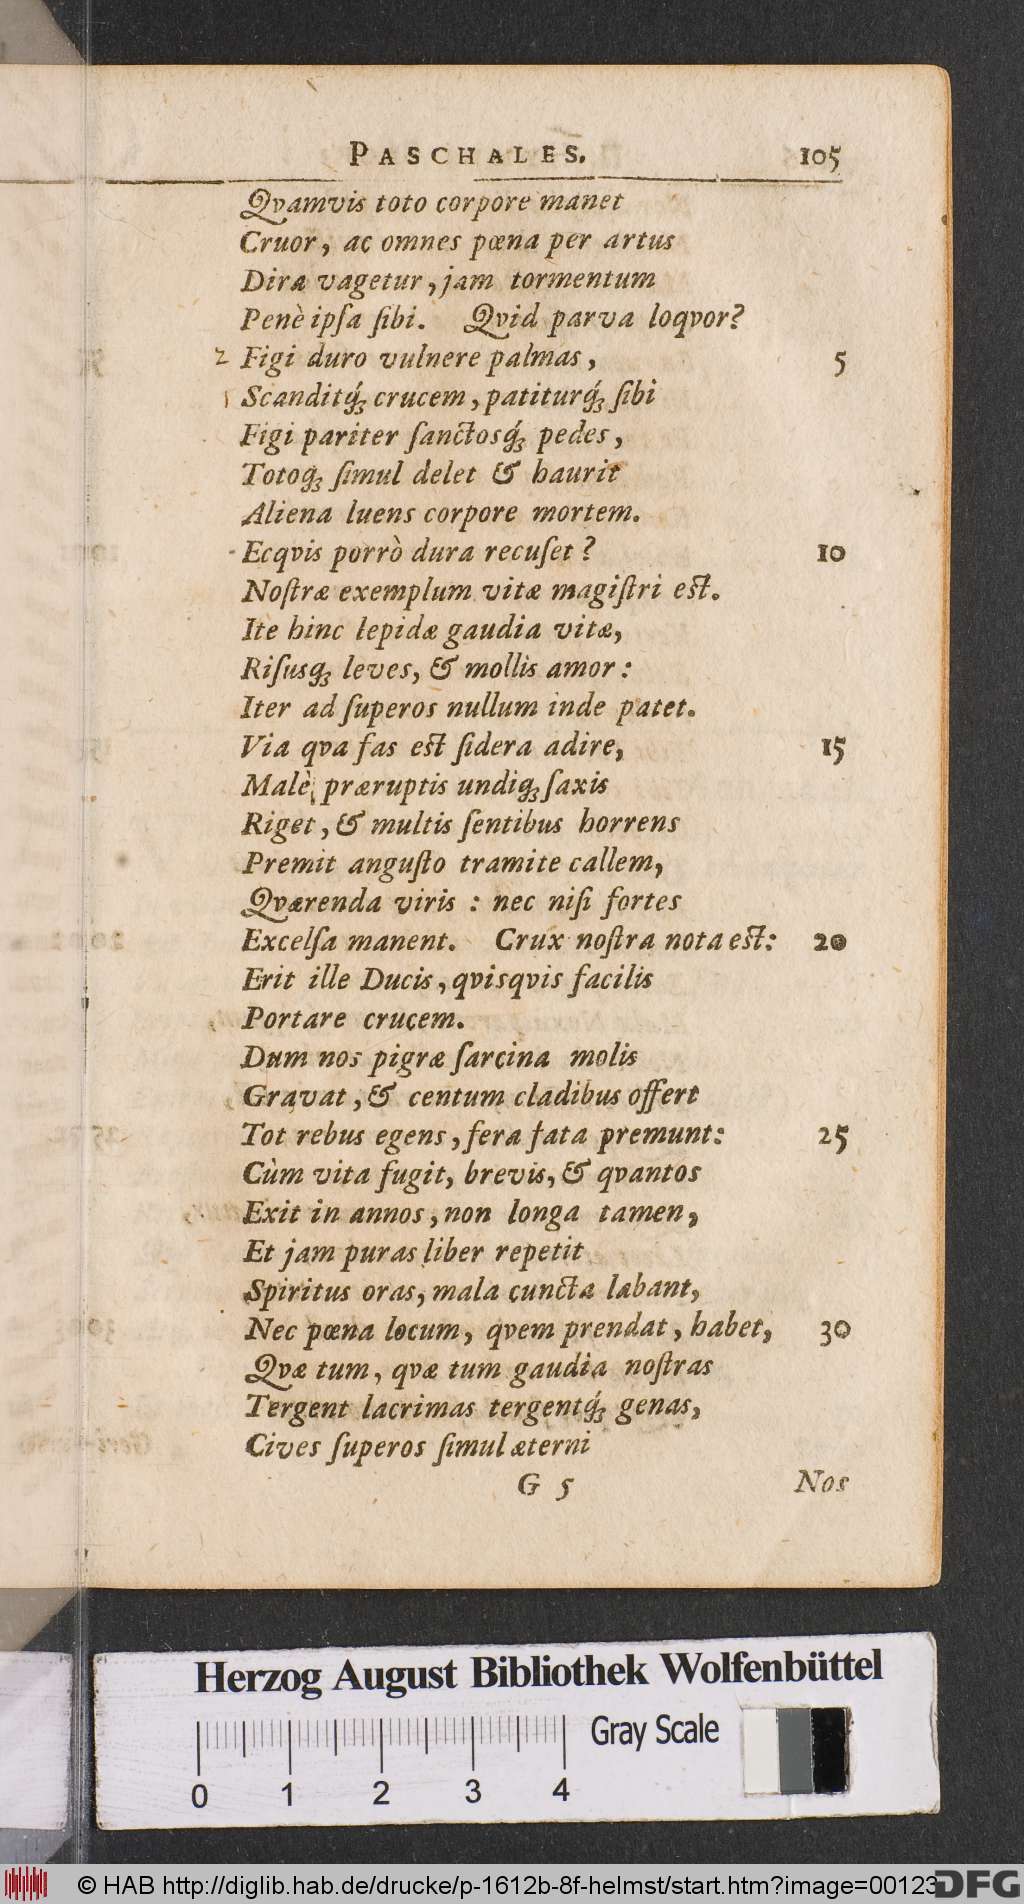 PASCHALES. 105
Qvamvis toto corpore manet
Cruor, ac omnes pœna per artus
Dira vagetur, jam tormentum
Penè ipſa ſibi. Qvid parva loqvor?
2 Figi duro vulnere palmas, 5
1 Scanditq́ꝫ crucem, patiturq́ꝫ ſibi
Figi pariter ſanctosq́ꝫ pedes,
Totoqꝫ ſimul delet & haurit
Aliena luens corpore mortem.
Ecqvis porrò dura recuſet? 10
Noſtræ exemplum vitæ magiſtri eſt.
Ite hinc lepidæ gaudia vitæ,
Riſusqꝫ leves, & mollis amor:
Iter ad ſuperos nullum inde patet.
Via qva fas eſt ſidera adire, 15
Malè præruptis undiqꝫ ſaxis
Riget, & multis ſentibus horrens
Premit anguſto tramite callem,
Qværenda viris: nec niſi fortes
Excelſa manent. Crux noſtra nota eſt: 20
Erit ille Ducis, qvisqvis facilis
Portare crucem.
Dum nos pigræ ſarcina molis
Gravat, & centum cladibus offert
Tot rebus egens, fera fata premunt: 25
Cùm vita fugit, brevis, & qvantos
Exit in annos, non longa tamen,
Et jam puras liber repetit
Spiritus oras, mala cuncta labant,
Nec pœna locum, qvem prendat, habet, 30
Qvæ tum, qvæ tum gaudia noſtras
Tergent lacrimas tergentq́ꝫ genas,
Cives ſuperos ſimul æterni
G 5 Nos
Herzog August Bibliothek Wolfenbüttel
Gray Scale
0 1 2 3 4
© HAB http://diglib.hab.de/drucke/p-1612b-8f-helmst/start.htm?image=00123
DFG